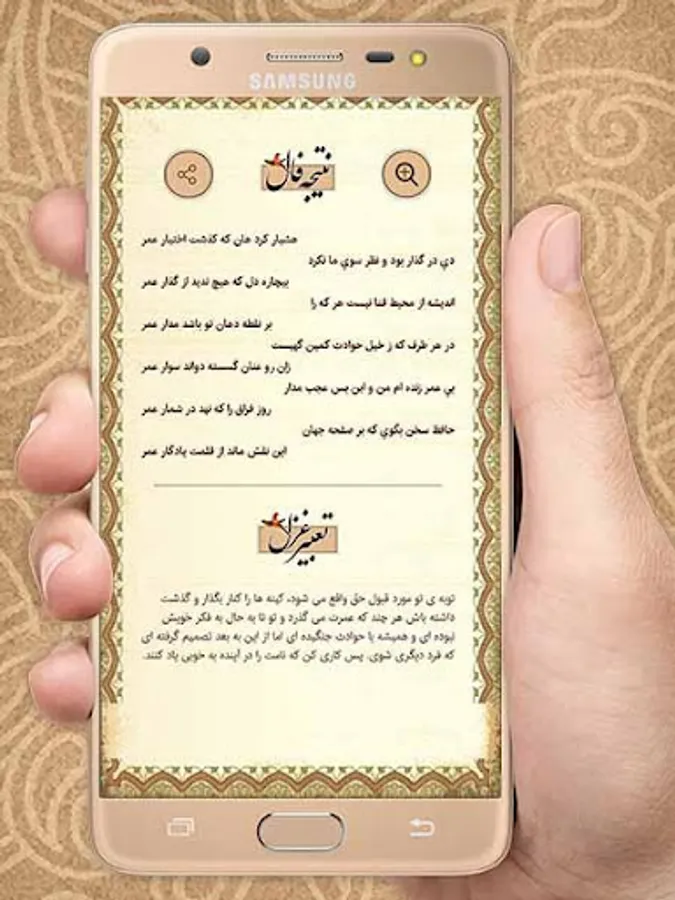 SAMSUNG
نتیجه فال
هشیار کرد هان که گذشت اختیار عمر
دي در گذار بود و نظر سوي ما نکرد
بیچاره دل که هیچ ندید از گذار عمر
اندیشه از محیط فنا نیست هر که را
بر نقطه دهان تو باشد مدار عمر
در هر طرف که ز خیل حوادث کمین گهیست
زان رو عنان گسسته دواند سوار عمر
بي عمر زنده ام من و این بس عجب مدار
روز فراق را که نهد در شمار عمر
حافظ سخن بگوي که بر صفحه جهان
این نقش ماند از قلمت یادگار عمر
تعبیر غزل
توبه ی تو مورد قبول حق واقع می شود، کینه ها را کنار بگذار و گذشت
داشته باش هر چند که عمرت می گذرد و تو تا به حال به فکر خویش
نبوده ای و همیشه با حوادث جنگیده ای اما از این به بعد تصمیم گرفته ای
که فرد دیگری شوی. پس کاری کن که نامت را در آینده به خوبی یاد کنند.